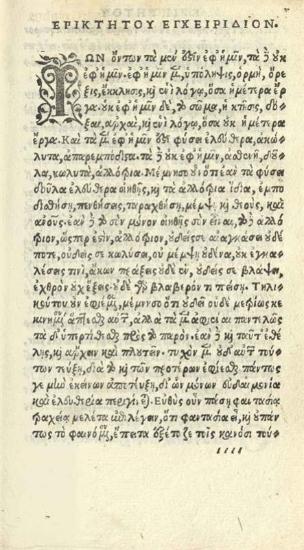 ΕΠΙΚΤΗΤΟΥ ΕΓΧΕΙΡΙΔΙΟΝ.
ΤΩΝ ὄντων τὰ μέν ὅξιν ἐφ' ἡμῖν, τὰ δ' οὐκ
ἐφ' ἡμῖν. ἐφ' ἡμῖν μὲν, ὑπόληψις, ὁρμὴ, ὄρε
ξις, ἔκκλισις, καὶ ἑνὶ λόγῳ, ὅσα ἡμέτερα ἔρ
γα. οὐκ ἐφ' ἡμῖν δὲ, τὸ σῶμα, ἡ κτῆσις, δό
ξαι, ἀρχαὶ, καὶ ἑνὶ λόγῳ, ὅσα οὐχ ἡμέτερα
ἔργα. Καὶ τὰ μὲν ἐφ' ἡμῖν ὅξι φύσει ἐλεύθερα, ἀκώ
λυτα, ἀπαρεμπόδιστα. τὰ δ' οὐκ ἐφ' ἡμῖν, ἀσθενῆ, δοῦ
λα, κωλυτὰ, ἀλλότρια. Μέμνησο οὖν ὅτι ἐὰν τὰ φύσει
δοῦλα ἐλεύθερα οἰηθῇς, καὶ τὰ ἀλλότρια ἴδια, ἐμπο
διοθήσῃ, πενθήσεις, ταραχθήσῃ, μέμψῃ καὶ θεοὺς, καὶ
ἀνους. ἐὰν δὲ τὸ σὸν μόνον οἰηθῇς σὸν εἶναι, τὸ δ' ἀλλό
τριον, ὥσπερ ἐστὶν, ἀλλότριον, οὐδείς σε ἀναγκάσει οὐδέ
ποτε, οὐδείς σε κωλύσει, οὐ μέμψῃ οὐδένα, οὐκ ἐγκα
λέσεις τινὶ, ἄκων πράξεις οὐδὲ ἓν, οὐδείς σε βλάψει,
ἐχθρὸν οὐχ ἕξεις· οὐδὲ γὰρ βλαβερόν τι πείσῃ. Τηλι
κούτων οὖν ἐφιέμενος, μέμνησο ὅτι οὐ δεῖ μετρίως κε
κινημένον ἅπτεσθαι αὐτῶν, ἀλλὰ τὰ μὲν ἀφιέναι παντελῶς
τὰ δ' ὑπερτίθεσθαι πρὸς τὸ παρόν. ἐὰν δὲ καὶ ταῦτ' ἐθέ
λῃς, καὶ ἄρχειν καὶ πλουτεῖν. τυχὸν μὲν οὐδ' αὐτῶν τού
των τεύξῃ, διὰ τὸ καὶ τῶν προτέρων ἐφίεσθαι. πάντως
γε μὴν ἐκείνων ἀποτεύξῃ, δι' ὧν μόνων εὐδαιμονία
καὶ ἐλευθερία περιγίνεται. Εὐθὺς οὖν πάσῃ φαντασίᾳ
τραχείᾳ μελέτα ἐπιλέγειν, ὅτι φαντασία εἶ, καὶ οὐ πάν
τως τὸ φαινόμενον. ἔπειτα ἐξέταζε τοῖς κανόσι τού